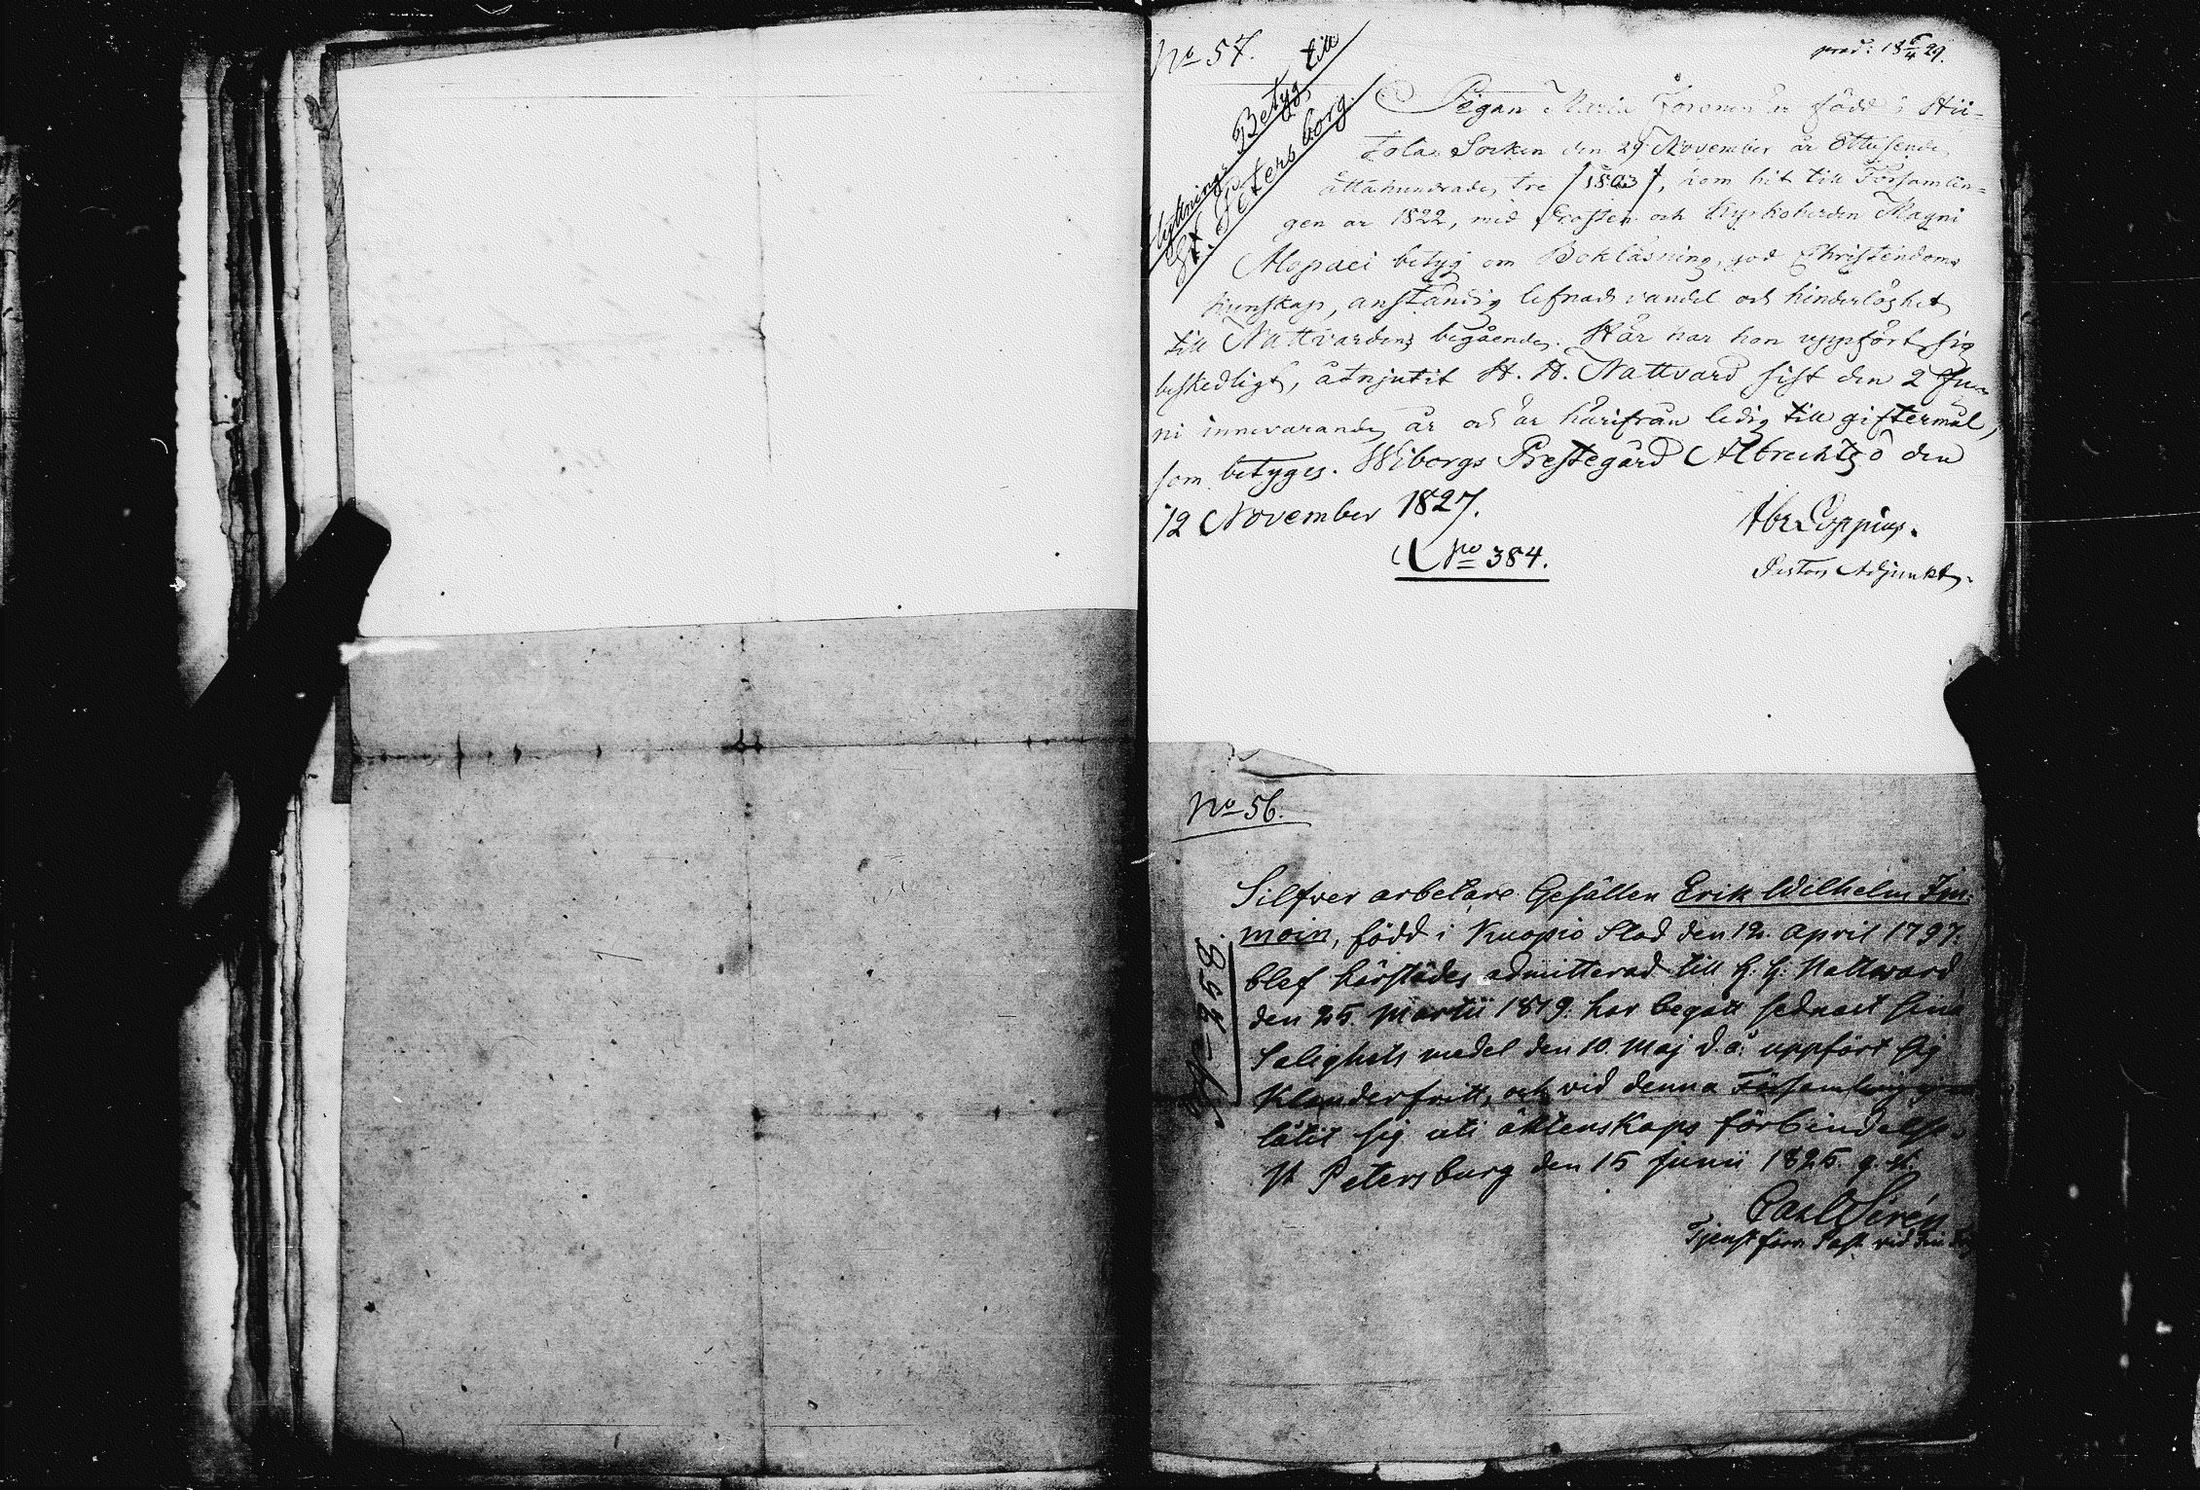 No 57.
prod: 18 6/4 29.
flyttnings Betyg till
St. Petersborg.
Pigan Maria Joronen är född i Hii-
tola Socken den 29 November år Ettusende,
åttahundrade, tre /1803/, kom hit till Församlin-
gen år 1822, med Prosten och Kyrkoherden Magni
Alopaei betyg om Bokläsning, god Christendoms
kunskap, anständig lefnads vandel och hinderlöshet
till Nattvardens begående. Här har hon uppfört sig
beskedligt, åtnjutit H. H. Nattvard sist den 2 Ju-
ni innevarande år och är härifrån ledig till giftermål,
som betyges. Wiborgs Prestegård Albrechtsö den
12 November 1827.
Abr. Poppius.
No 384.
Pastors Adjunkt.
No 56.
No 258.
Silfver arbetare Gesällen Erik Wilhelm Im-
moin, född i Kuopio Stad den 12. April 1797.
blef härstädes admitterad till H. H. Nattward
den 25. Martii 1819. har begått sednast sina
Salighets medel den 10. Maj d.å. uppfört sig
klanderfritt, och vid denna Församling ej in
låtit sig uti äktenskaps förbindelse.
St Petersburg den 15 Junii 1825. g. st.
Carl Sirén
Tjenst förr. Past. vid